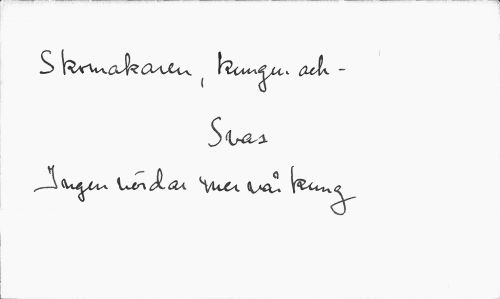 Skomakaren, kungen och -
Svas
Ingen vördar mer vår kung